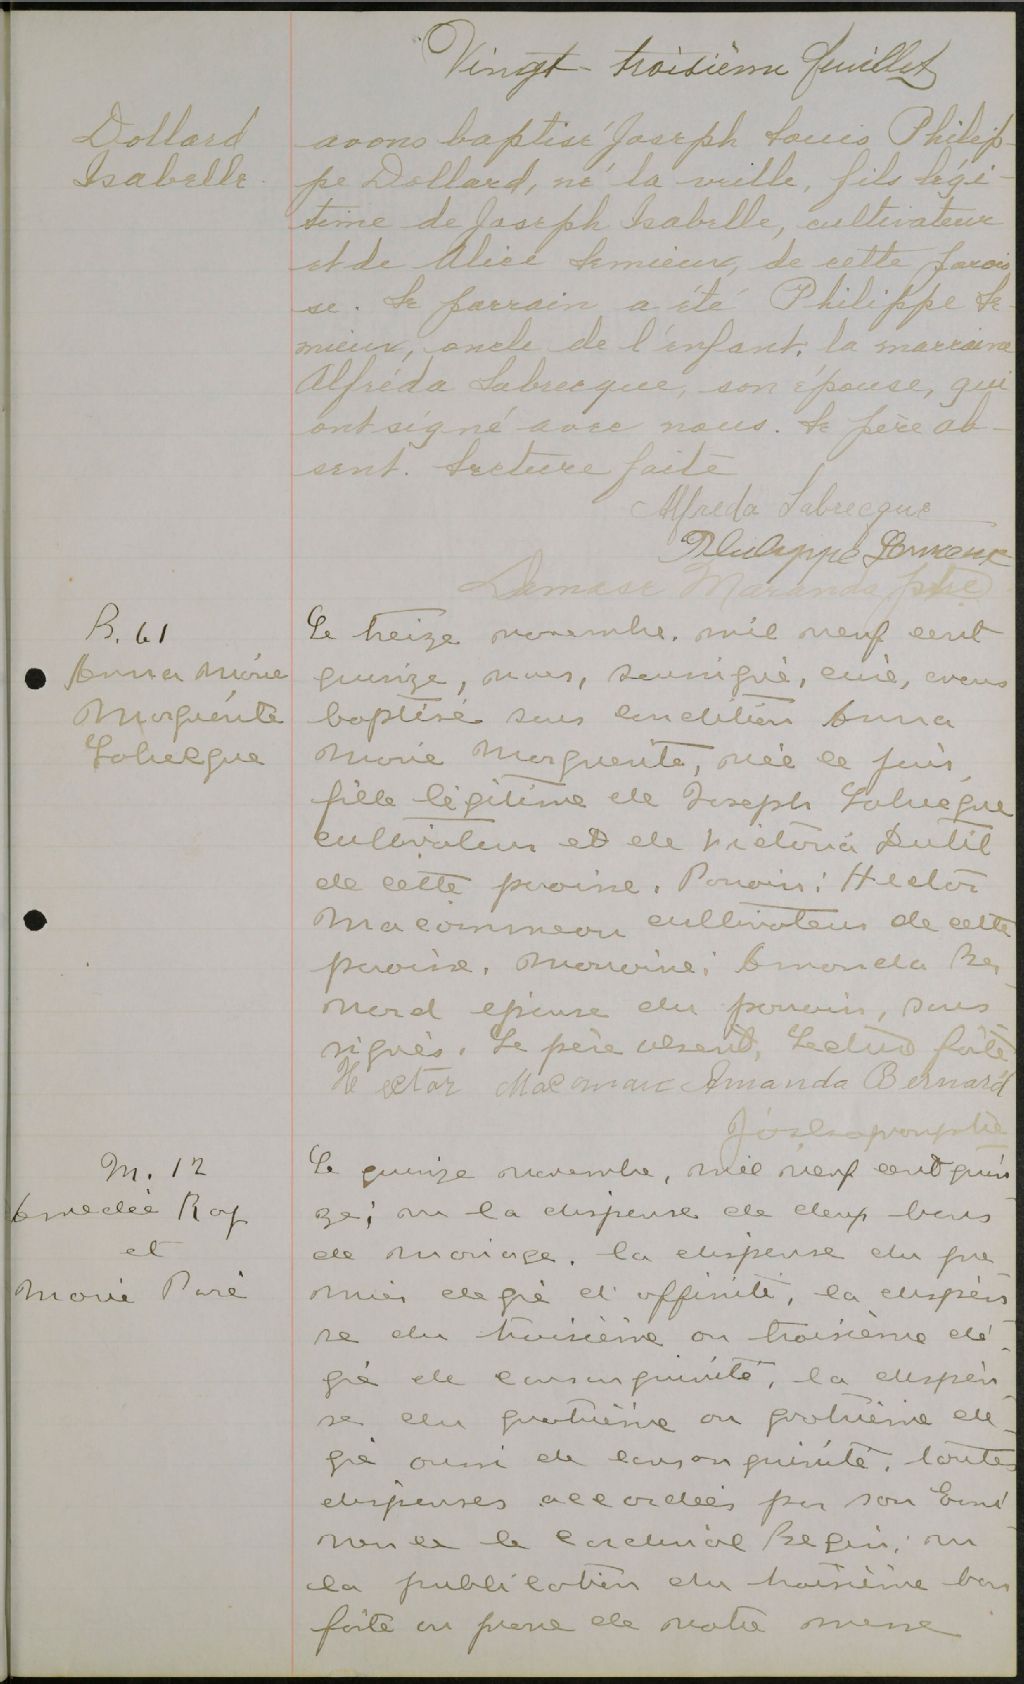 Vingt-troisième feuillet
Dollard
Isabelle
avons baptisé Joseph Louis Philip-
pe Dollard, né la veille, fils légi-
time de Joseph Isabelle, cultivateur
et de Alice Lemieux, de cette parois
se. Le parrain a été Philippe Le-
mieux, oncle de l'enfant; la marraine
Alfréda Labrecque, son épouse, qui
ont signé avec nous. Le père ab-
sent. Lecture faite
Alfreda Labrecque
Philippe Lemieux
Damase Maranda ptre
B. 61
Anna Marie
Marguerite
Labrecque
Le treize novembre, mil neuf cent
quinze, nous, soussigné, curé, avons
baptisé sous condition Anna
Marie Marguerite, née ce jour,
fille légitime de Joseph Labrecque
cultivateur et de Victoria Dutil
de cette paroisse. Parrain: Hector
cultivateur de cette
paroisse. Marraine: Amanda Ber
nard épouse du parrain, sous
signés. Le père absent, Lecture faite
Hector Amanda Bernard
M. 12
Amedée Roy
et
Marie Paré
Le quinze novembre, mil neuf cent quin
ze; vu la dispense de deux bans
de mariage, la dispense du pre
mier degré d'affinité, la dispen
se du troisième au troisième dé
gré de consanguinité, la dispen
se du quatrième au quatrième dé
gré aussi de consanguinité, toutes
dispenses accordées par son Emi
nence le Cardinal Begin; vu
la publication du troisième ban
faite au prone de notre messe